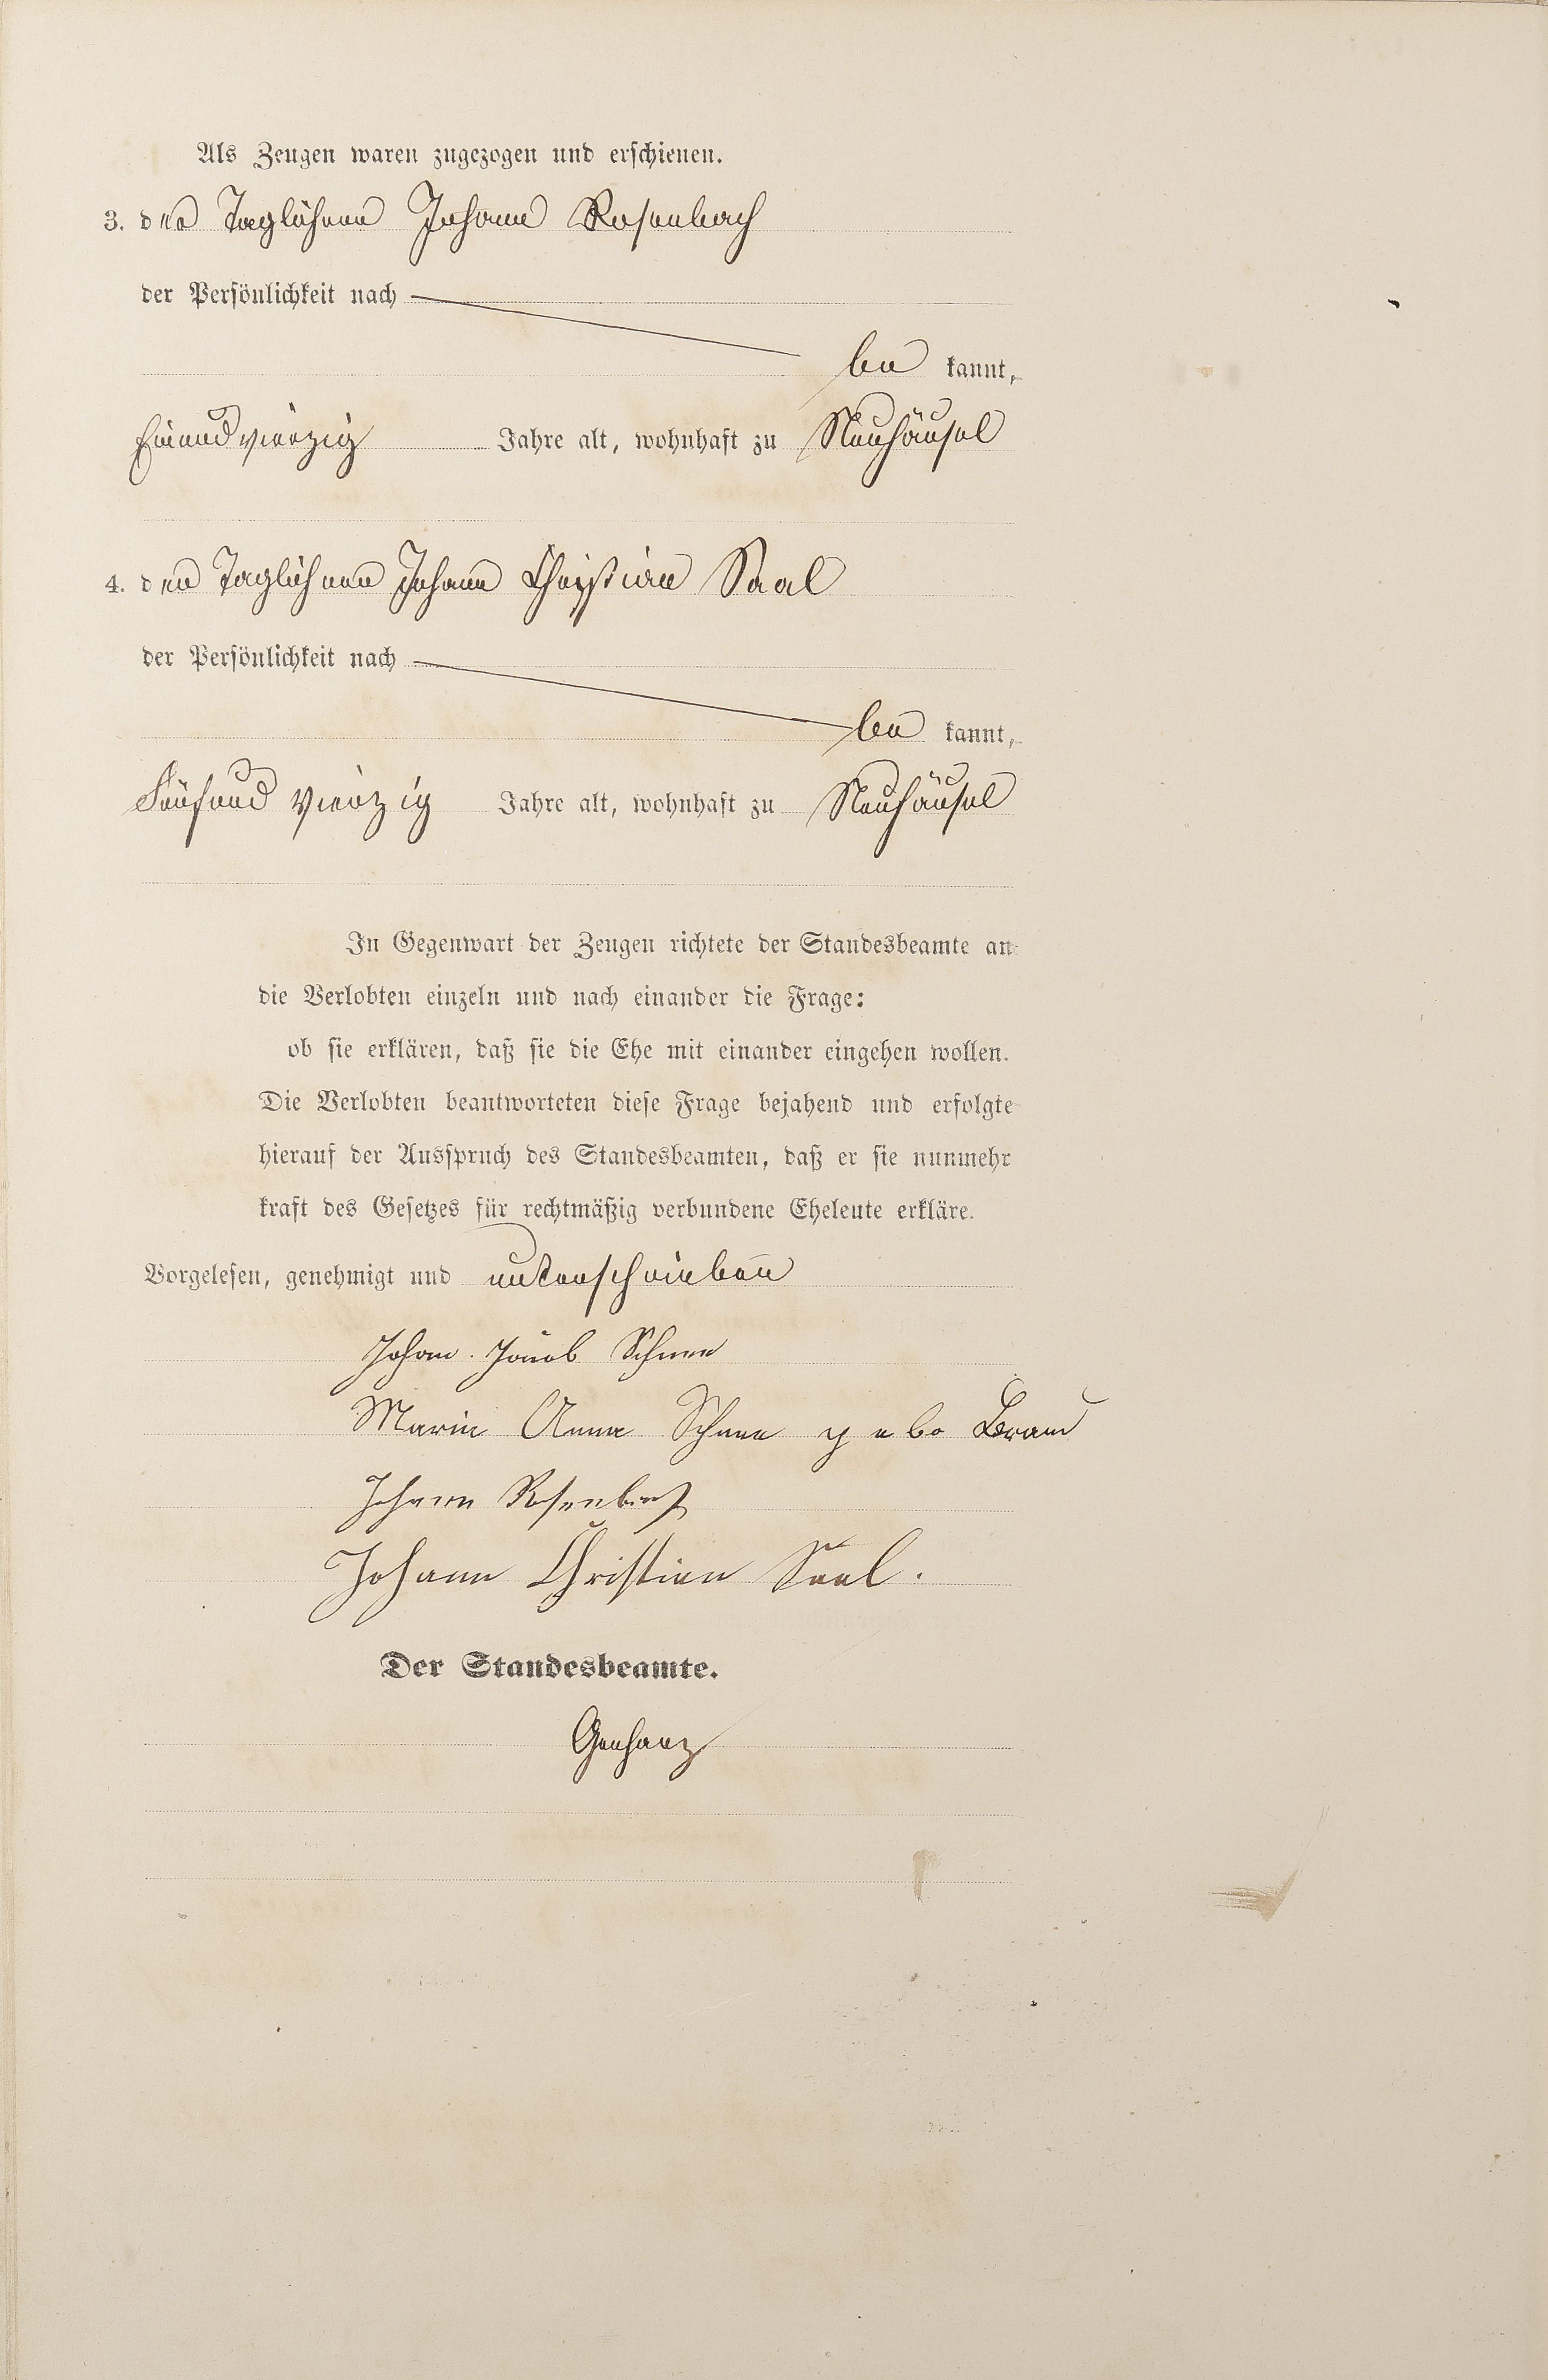 Als Zeugen waren zugezogen und erschienen.
3. der Taglöhner Johann Rosenbach
der Persönlichkeit nach
be kannt,
Einundvierzig Jahre alt, wohnhaft zu Neuhäusel
4. der Taglöhner Johann Christian Saal
der Persönlichkeit nach
be kannt,
Fünfund vierzig Jahre alt, wohnhaft zu Neuhäusel
In Gegenwart der Zeugen richtete der Standesbeamte an
die Verlobten einzeln und nach einander die Frage:
ob sie erklären, daß sie die Ehe mit einander eingehen wollen.
Die Verlobten beantworteten diese Frage bejahend und erfolgte
hierauf der Ausspruch des Standesbeamten, daß er sie nunmehr
kraft des Gesetzes für rechtmäßig verbundene Eheleute erkläre.
Vorgelesen, genehmigt und unterschrieben
Johann Jacob
Maria Anna
Johann Rosenbach
Johann Christian Saal.
Der Standesbeamte.